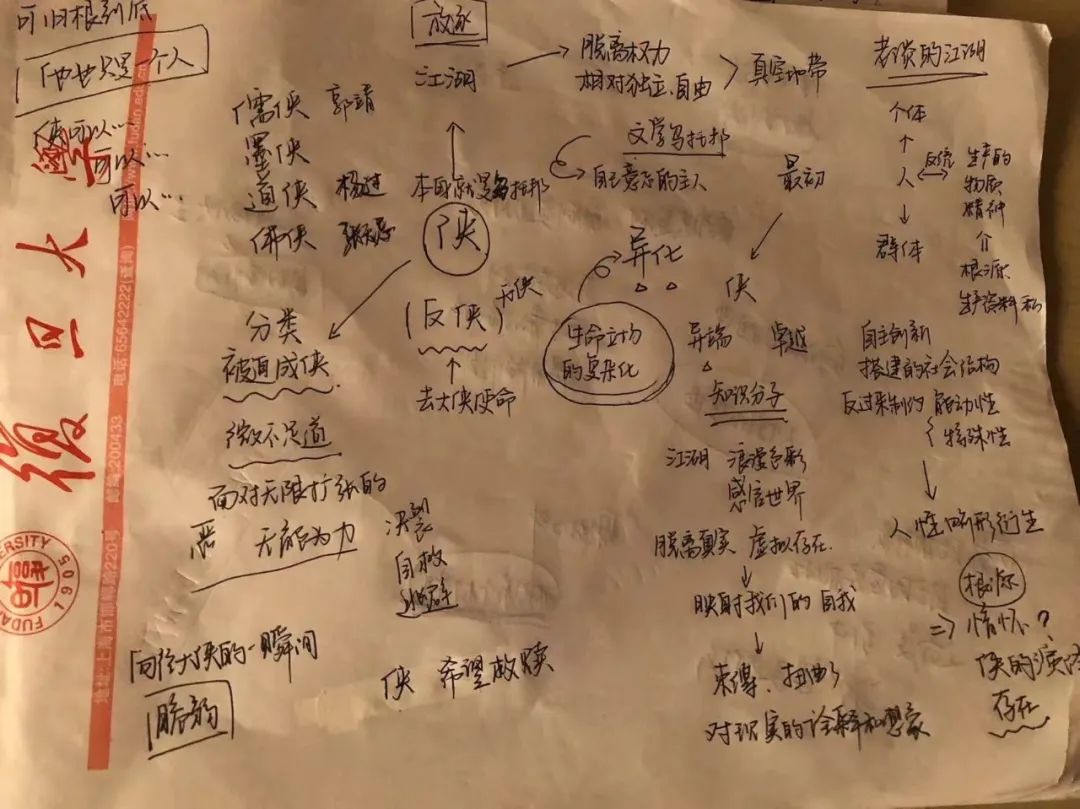 可归根到底
「他也只是一个人
侠可以…
可以…
可以…
儒侠 郭靖
墨侠
道侠 杨过
佛侠
放逐
江湖
脱离权力
相对独立、自由
真空地带
文学乌托邦
自己意志的主人
侠
异化
生命立场
的复杂化
(反侠)
去大侠使命
分类
被逼成侠
微不足道
面对无限扩张的
恶 无能为力
决裂
自救
向往大侠的一瞬间
侠 希望救赎
最初
侠
异端 卓越
知识分子
江湖 浪漫色彩
感官世界
脱离真实 虚拟存在
映射我们的自我
束缚、扭曲
对现实的诠释和想象
老谈的江湖
个体
人
群体
生产的
物质
精神
根源
生产资料私
自主创新
搭建的社会结构
反过来制约 能动性
特殊性
人性畸形衍生
根源
⇒ 情怀?
存在
復旦大學
www.fudan.edu.cn
电话:65642222(查询)
邮编:200433
地址:上海市邯郸路220号
FUDAN
ERSITY
1905